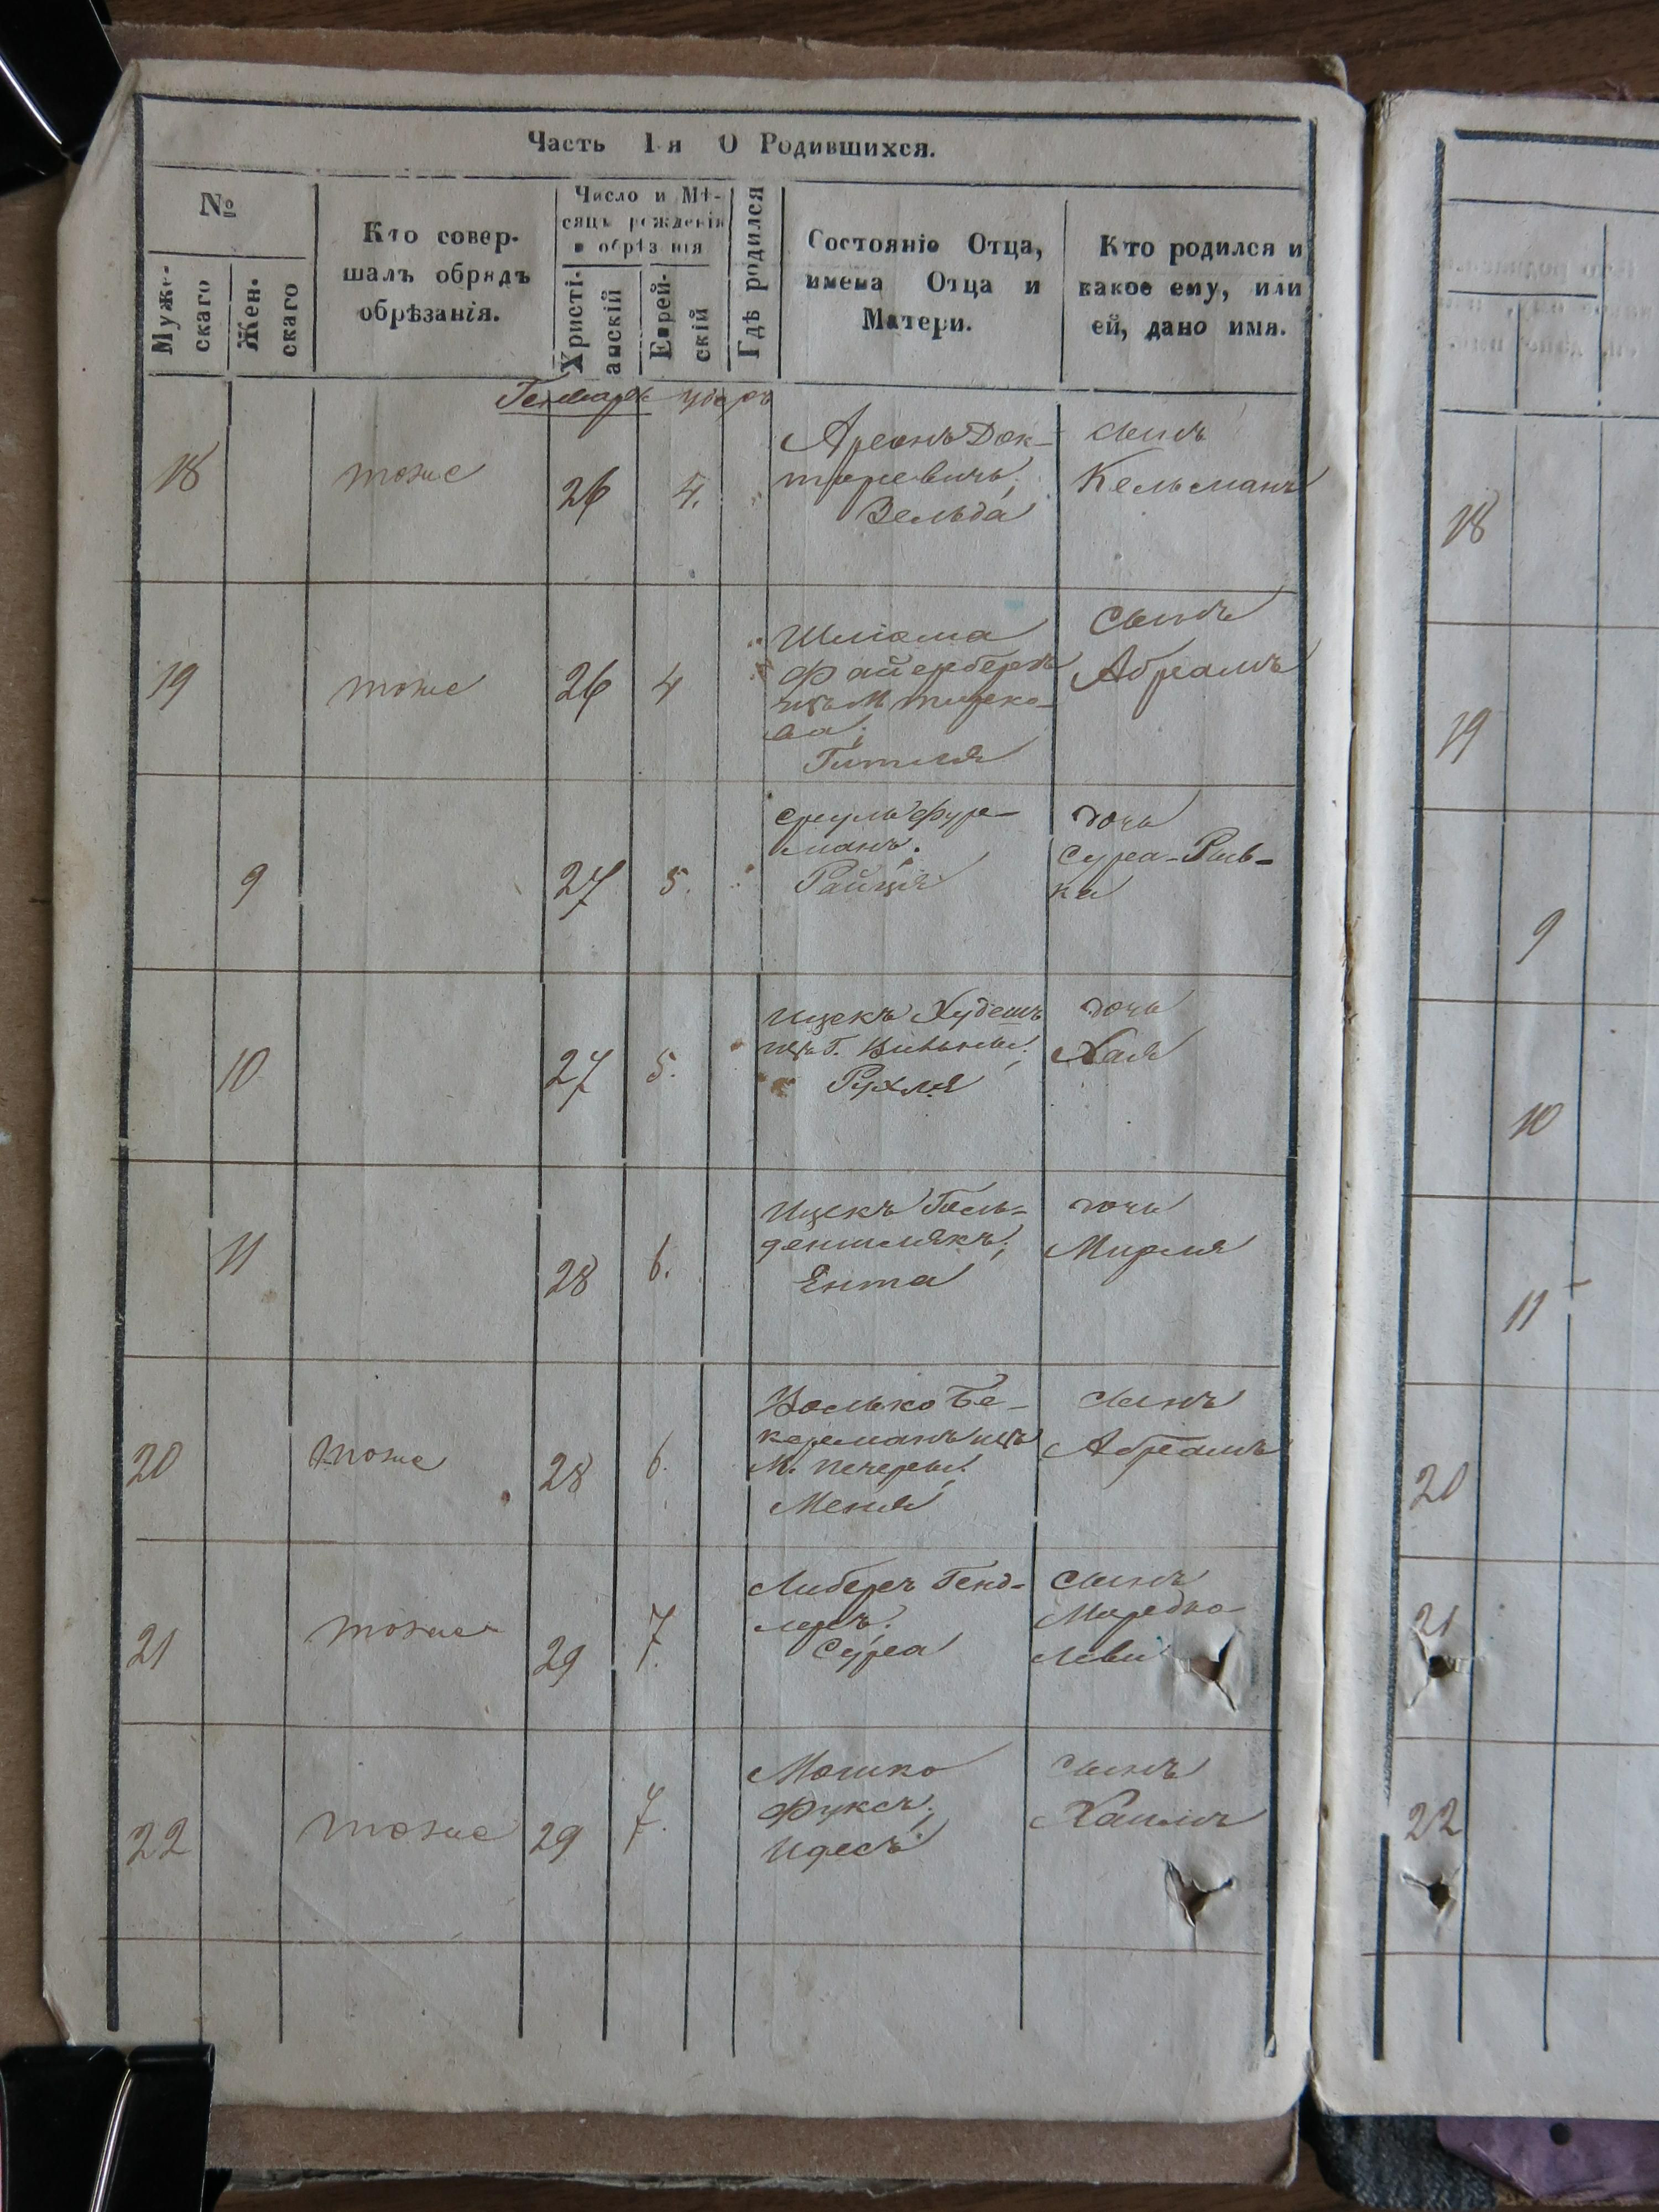 Часть 1-я О Родившихся.
№
Муже-
скаго
Жен-
скаго
Кто совер-
шалъ обрядъ
обрѣзанія.
Число и Мѣ-
сяцъ рожденія
и обрѣзанія
Христі-
анскій
Еврей-
скій
Гдѣ родился
Состояніе Отца,
имена Отца и
Матери.
Кто родился и
какое ему, или
ей, дано имя.
Генварь
18
тоже
26
4.
Аронъ Док-
торовичъ;
Зельда
сынъ
Кельманъ
19
тоже
26
4
Шліома
Файербергъ
изъ М.
Гитля
Сынъ
Абрамъ
9
27
5.
Сруль Фур-
манъ.
Райця
дочь
Сура-Рив-
ка
10
27
5.
Ицекъ Худешъ
изъ Г.
Рухля
дочь
Хая
11
28
6.
Ицекъ Голь-
деншлякъ;
Ента
дочь
Мирля
20
тоже
28
6.
Волько Бе-
керманъ изъ
М. Печеры;
Меня
сынъ
Абрамъ
21
тоже
29
7.
Либеръ Генд-
леръ;
Сура
Сынъ
Мордко
Леви
22
тоже
29
7.
Мошко
Фуксъ;
Идесъ
сынъ
Хаимъ
18
19
9
10
11
20
21
22